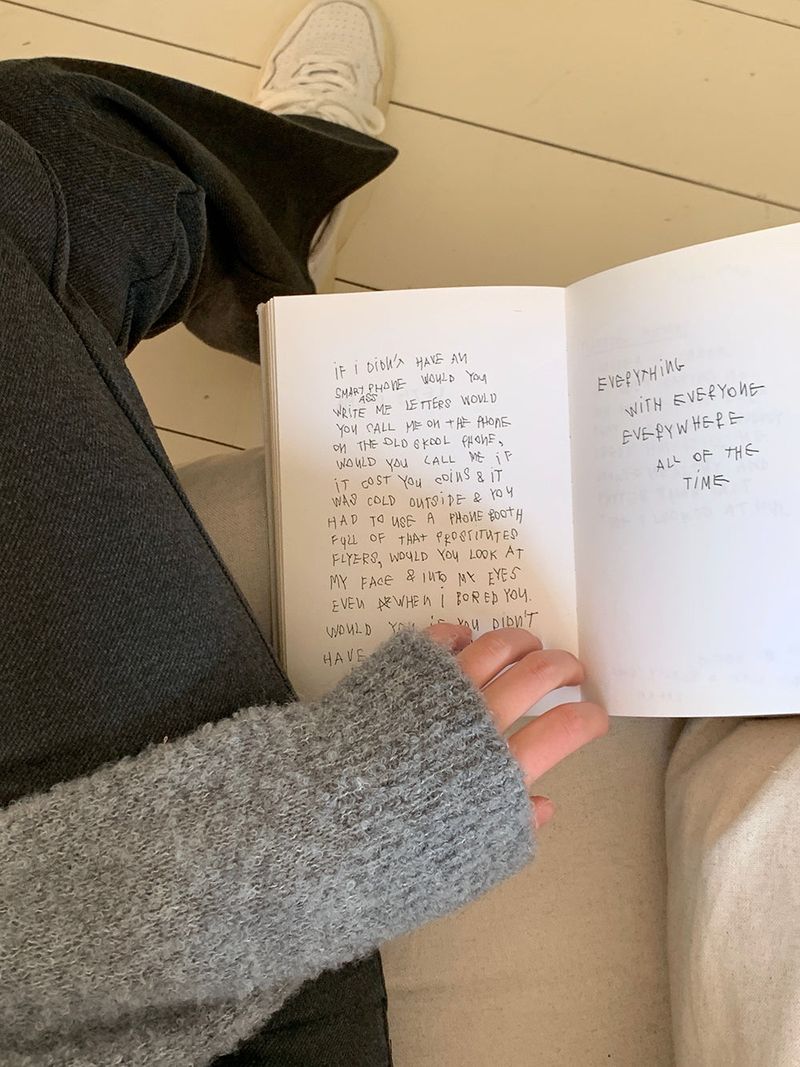 IF I DIDN'T HAVE AN
SMARTPHONE WOULD YOU
ASS
WRITE ME LETTERS WOULD
YOU CALL ME ON THE PHONE
ON THE OLD SKOOL PHONE,
WOULD YOU CALL ME IF
IT COST YOU COINS & IT
WAS COLD OUTSIDE & YOU
HAD TO USE A PHONE BOOTH
FULL OF THAT PROSTITUTES
FLYERS, WOULD YOU LOOK AT
MY FACE & INTO MY EYES
EVEN WHEN I BORED YOU.
WOULD YOU IF YOU DIDN'T
HAVE
EVERYTHING
WITH EVERYONE
EVERYWHERE
ALL OF THE
TIME